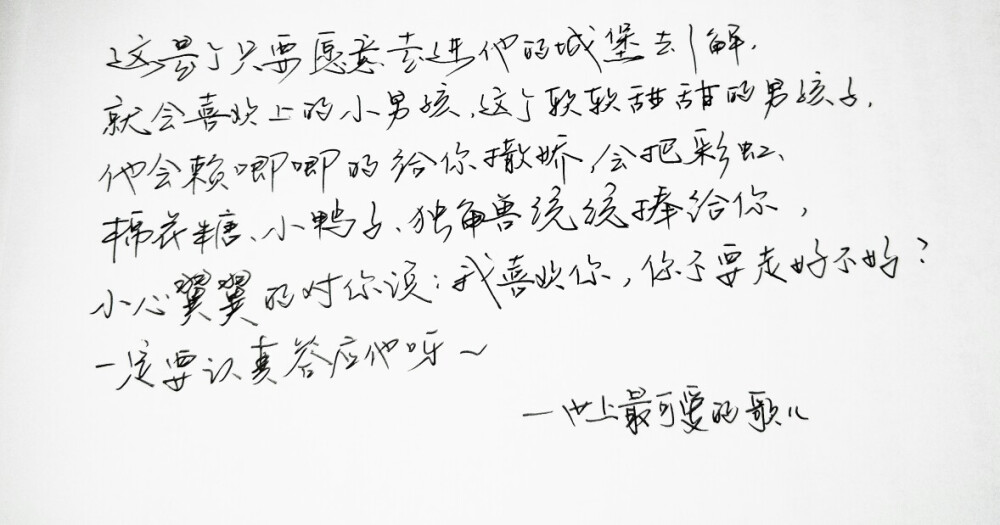 这是个只要愿意走进他的城堡去了解,
就会喜欢上的小男孩,这个软软甜甜的男孩子,
他会赖唧唧的给你撒娇,会把彩虹、
棉花糖、小鸭子、独角兽统统捧给你,
小心翼翼的对你说:我喜欢你,你不要走好不好?
一定要认真答应他呀~
—世上最可爱的歌儿